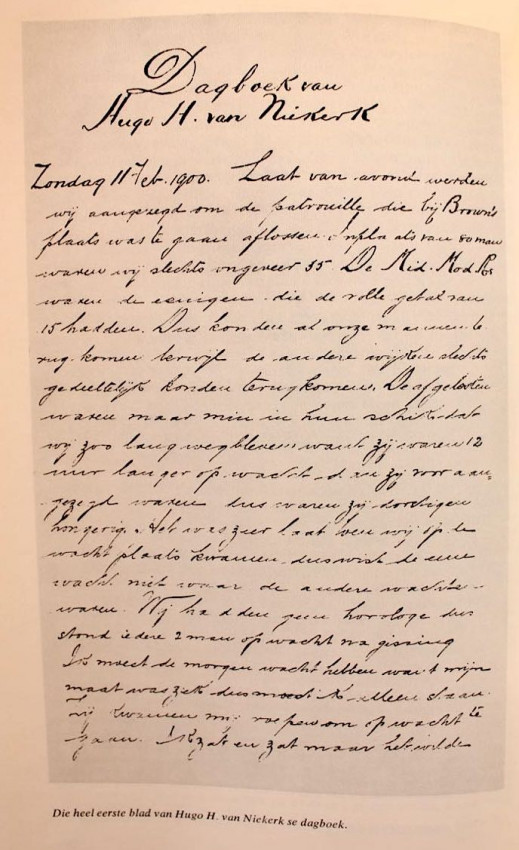 Dagboek van
Hugo H. van Niekerk
Zondag 11 Feb. 1900. Laat van avond werden
wij aangezegd om de patrouille die bij Brown's
plaats was te gaan aflossen. Inplaats van 80 man
waren wij slechts ongeveer 55. De Mid. Mod
waren de eenigen die de volle getal van
15 hadden. Dus konden al onze mannen te
rug komen terwijl de andere wijken slechts
gedeeltelijk konden terugkomen. De afgelosten
waren maar min in hun schik dat
wij zoo lang wegbleven want zij waren 12
uur langer op wacht dan zij voor aan-
gezegd waren dus waren zij dorstig en
hongerig. Het was zeer laat toen wij op de
wacht plaats kwamen dus wist de eene
wacht niet waar de andere wachts-
waren. Wij hadden geen horologe dus
stond iedere 2 man op wacht na gissing
Ik moest de morgen wacht hebben want mijn
maat was ziek dus moest ik alleen staan.
zij kwamen mij roepen om op wacht te
gaan. Ik zat en zat maar het wilde
Die heel eerste blad van Hugo H. van Niekerk se dagboek.